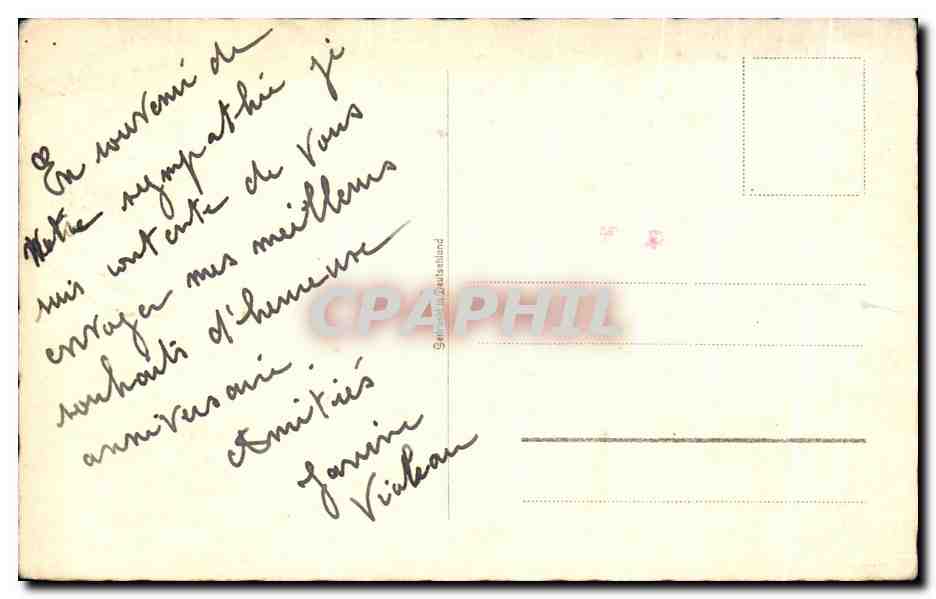 En souvenir de
Notre sympathie je
suis contente de Vous
envoyer mes meilleurs
souhaits d'heureuse
anniversaire.
Amitiés
Janine
Violeau
Gedruckt in Deutschland
CPAPHIL